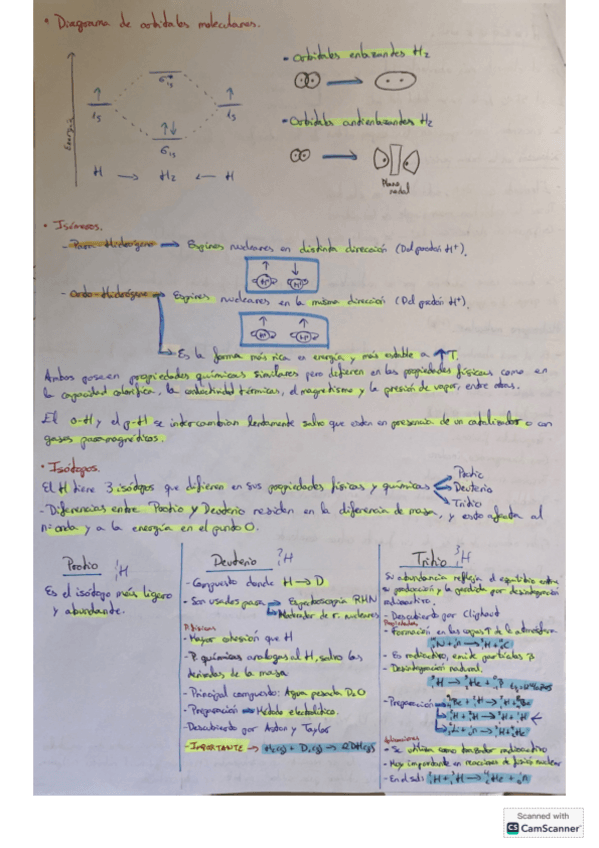 • Diagrama de orbitales moleculares.
Energía
σ*1s
1s
1s
σ1s
H → H2 ← H
• Orbitales enlazantes H2
• Orbitales antienlazantes H2
Plano nodal
• Isómeros.
- Para-Hidrógeno → Espines nucleares en distinta dirección (Del protón H⁺).
- Orto-Hidrógeno → Espines nucleares en la misma dirección (Del protón H⁺).
→ Es la forma más rica en energía y más estable a ↑T.
Ambos poseen propiedades químicas similares pero difieren en las propiedades físicas como en
la capacidad calorífica, la conductividad térmica, el magnetismo y la presión de vapor, entre otras.
El o-H y el p-H se intercambian lentamente salvo que estén en presencia de un catalizador o con
gases paramagnéticos.
• Isótopos.
El H tiene 3 isótopos que difieren en sus propiedades físicas y químicas
Protio
Deuterio
Tritio
- Diferencias entre Protio y Deuterio residen en la diferencia de masa, y esto afecta al
nº onda y a la energía en el punto 0.
Protio ¹₁H
Es el isótopo más ligero
y abundante.
Deuterio ²₁H
- Compuesto donde H → D
- Son usados para → Espectroscopía RMN
→ Moderador de r. nucleares
P. físicas
- Mayor cohesión que H
- P. químicas análogas al H, salvo las
derivadas de la masa
- Principal compuesto: Agua pesada D2O
- Preparación → Método electrolítico.
- Descubierto por Aston y Taylor
- IMPORTANTE → H2(g) + D2(g) → 2DH(g)
Tritio ³₁H
Su abundancia refleja el equilibrio entre
su producción y la pérdida por desintegración
radioactiva.
- Descubierto por
Propiedades
- Formación en las capas ↑ de la atmósfera
- Es radioactivo, emite partículas β
- Desintegración natural.
- Preparación
Aplicaciones
- Se utiliza como trazador radioactivo
- Muy importante en reacciones de fisión nuclear
- En el sol:
Scanned with
CS CamScanner